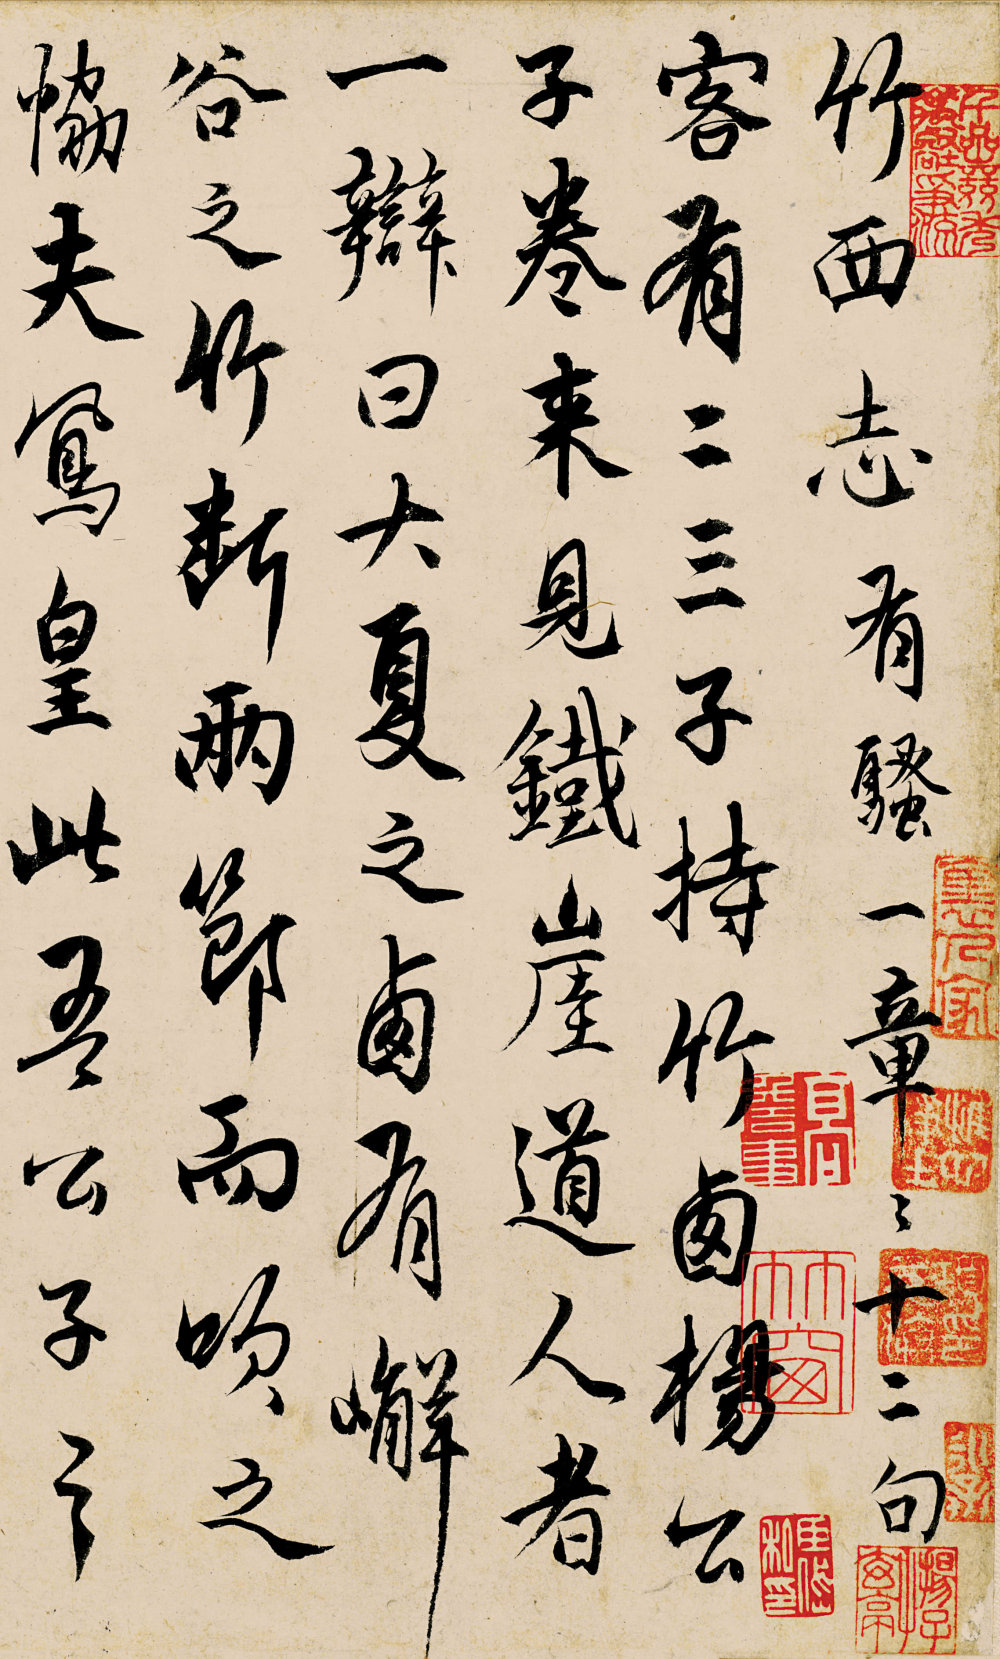 竹西志有騷一章〻十二句
客有二三子持竹卥楊公
子卷来見鐵崖道人者
一辯曰大夏之卥有嶰
谷之竹断兩節而吹之
恊夫鳳皇此吾公子之